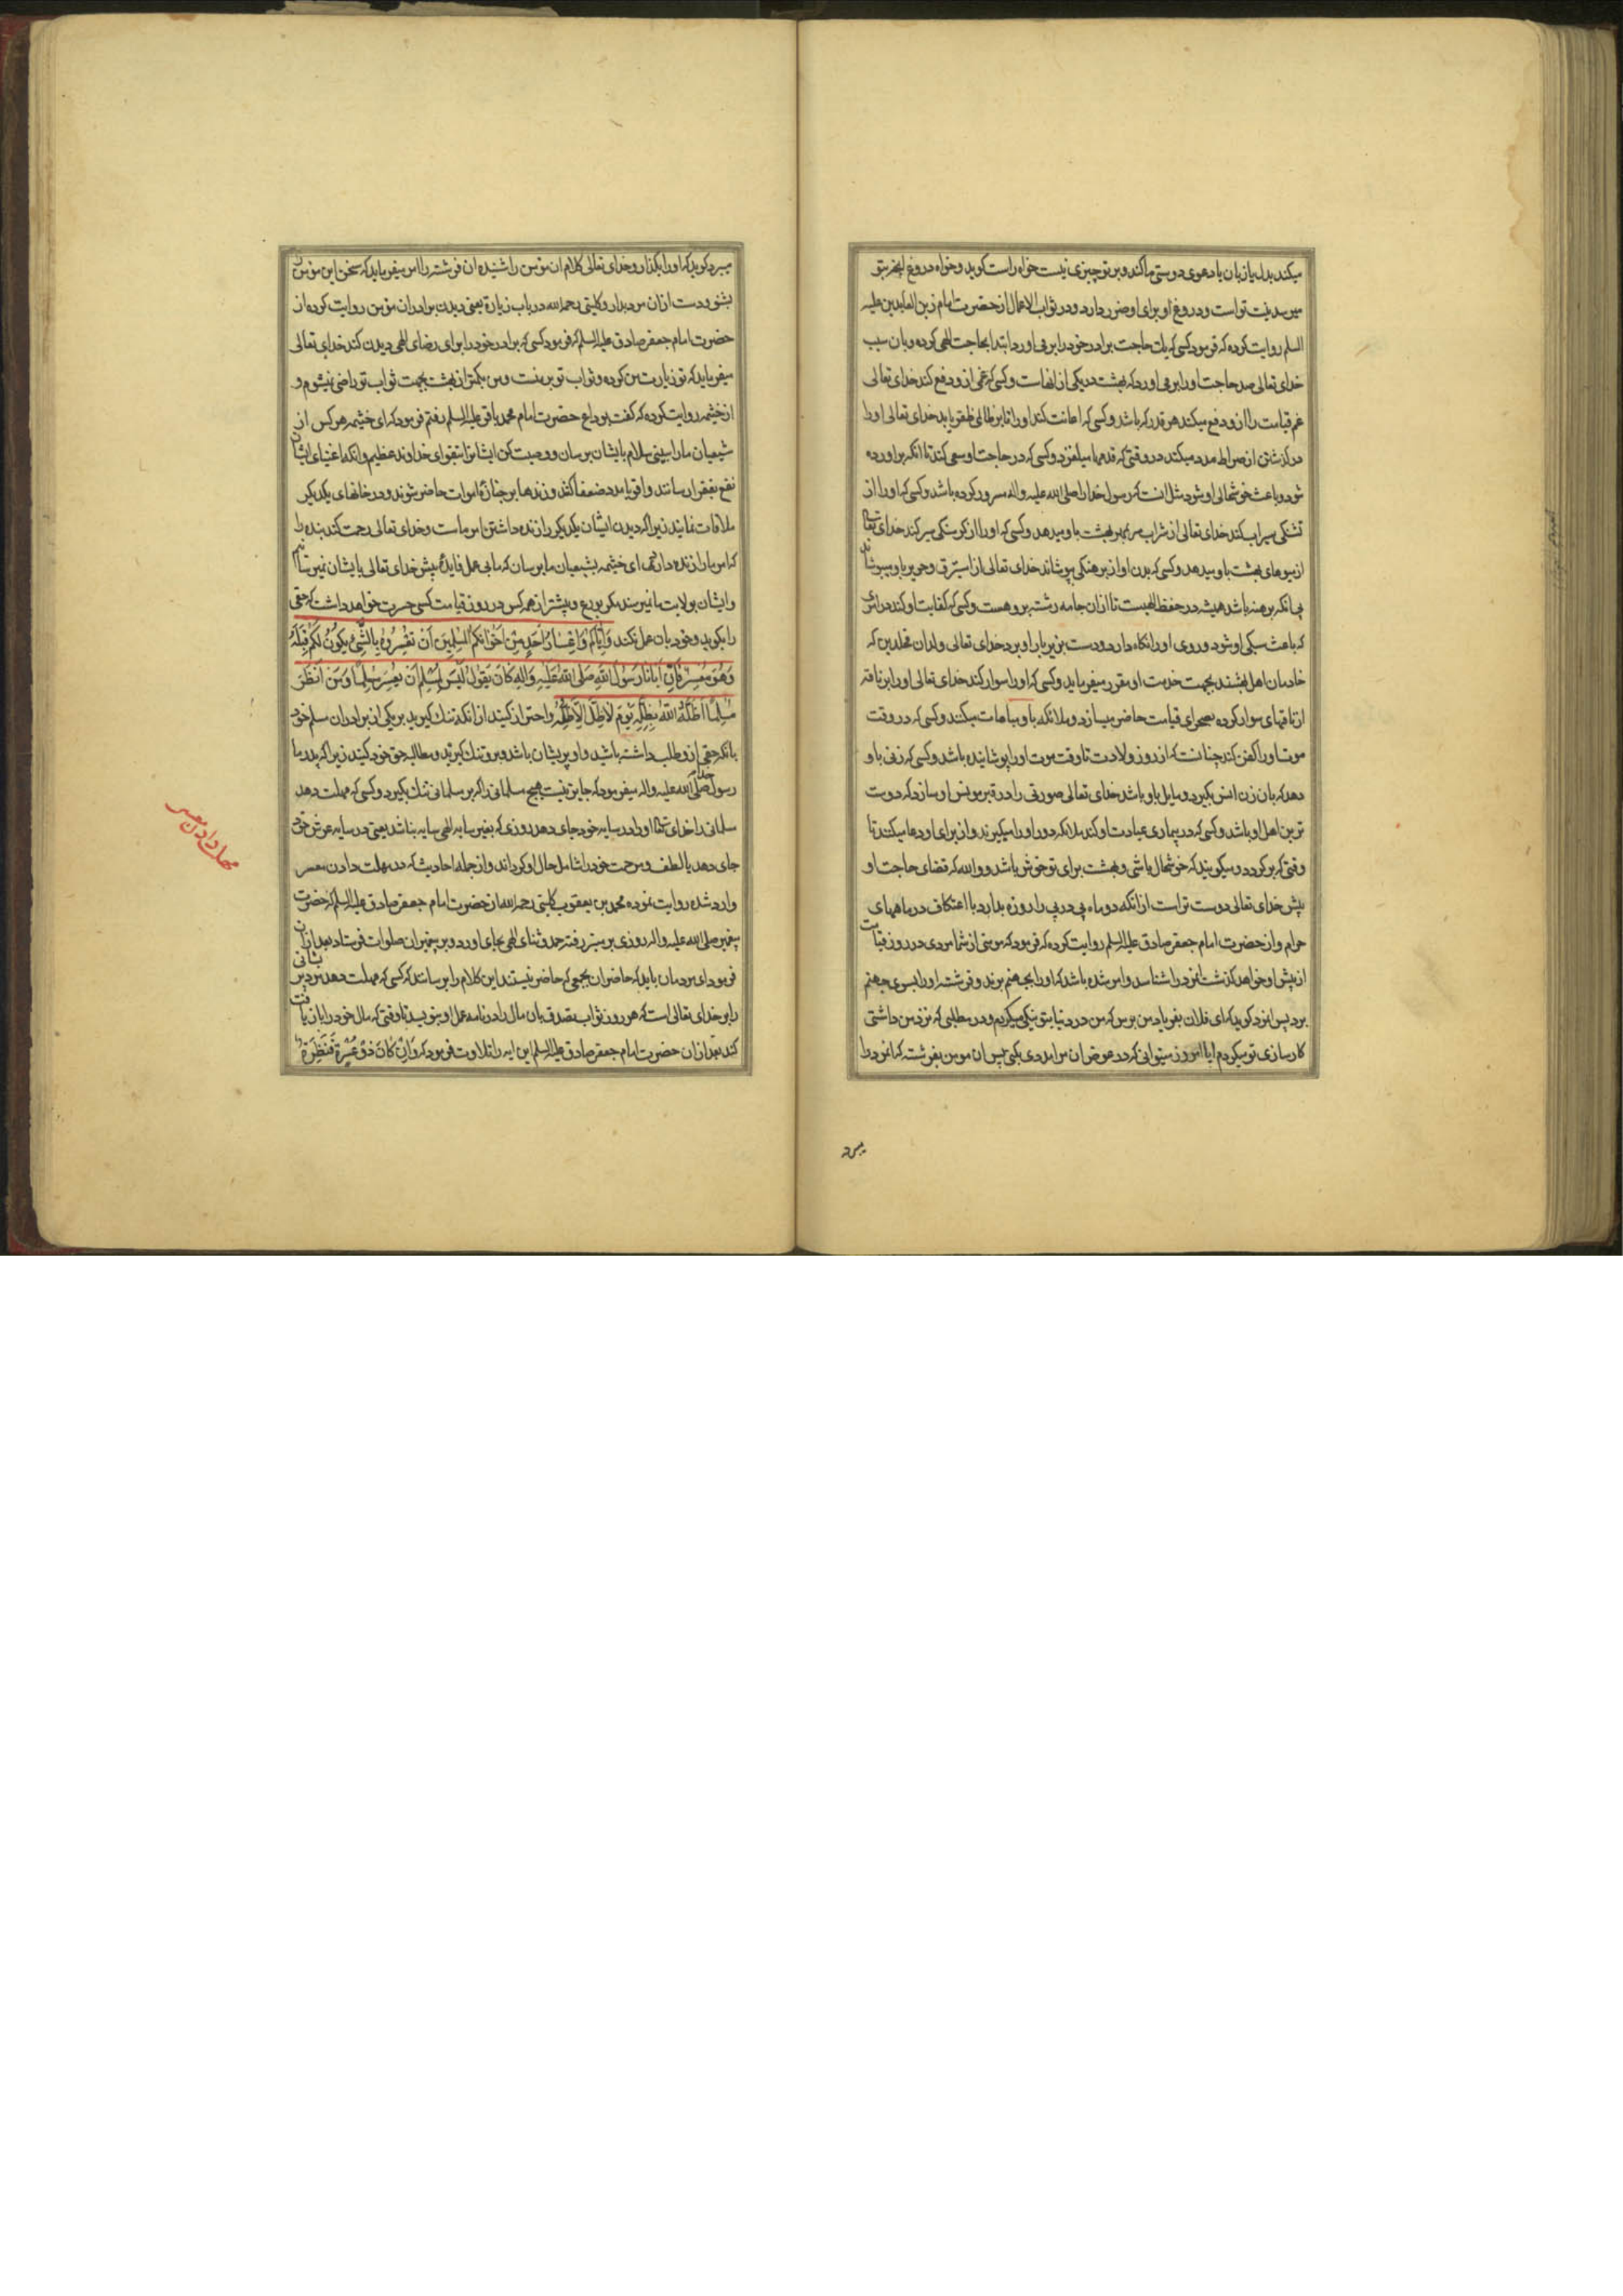 میکند بدل یا زبان یا دعوی دوستی ما کند و بر تو چیزی نیست خواه راست کوید و خواه دروغ انچه بتو
میرسد نیت تو است و دروغ او برای او ضرر دارد و در ثواب الاعمال از حضرت امام زین العابدین علیه
السلم روایت کرده که فرمود کسی که یک حاجت برادر خود را بر می اورد ابتدا بحاجت الهی کرده و بان سبب
خدای تعالی صد حاجت او را بر می اورد که بهشت در یکی از انهاست و کسی که غمی از و دفع کند خدای تعالی
غم قیامت را از و دفع میکند هر قدر که باشد و کسی که اعانت کند او را تا بر ظالمی ظفر یابد خدای تعالی او را
در کذشتن از صراط مدد میکند در وقتی که قدمها میلغزد و کسی که در حاجت او سعی کند تا انکه براورده
شود و باعث خوشحالی او شود مثل انست که رسول خدا را صلی الله علیه و اله مسرور کرده باشد و کسی که او را از
تشنکی سیراب کند خدای تعالی از شراب سر بمهر بهشت باو میدهد و کسی که او را از کرسنکی سیر کند خدای تعالی
از میوهای بهشت باو میدهد و کسی که بدن او از برهنکی بپوشاند خدای تعالی از استبرق و حریر باو میپوشاند
بی انکه برهنه باشد همیشه در حفظ الهیست تا از ان جامه رشته برو هست و کسی که کفایت او کند در امری
که باعث سبکی او شود و روی او را نکاه دارد و دست بزیر بار او برد خدای تعالی ولدان مخلدین که
خادمان اهل بهشتند بجهت خدمت او مقرر میفرماید و کسی که او را سوار کند خدای تعالی او را بر ناقه
از ناقهای سوار کرده بصحرای قیامت حاضر میسازد و ملائکه باو مباهات میکنند و کسی که در وقت
موت او را کفن کند چنانست که از روز ولادت تا وقت موت او را پوشانیده باشد و کسی که زنی باو
دهد که بان زن انس بکیرد و مایل باو باشد خدای تعالی صورتی را در قبر مونس او سازد که دوست
ترین اهل او باشد و کسی که در بیماری عیادت او کند ملائکه دور او را میکیرند و از برای او دعا میکنند تا
وقتی که بر کردد و میکویند که خوشحال باشی و بهشت برای تو خوش باشد و والله که قضای حاجت او
پیش خدای تعالی دوست تر است از انکه دو ماه پی در پی را روزه بدارد با اعتکاف در ماههای
حرام و از حضرت امام جعفر صادق علیه السلم روایت کرده که فرمود که مومنی از شما مردی در روز قیامت
از پیش او خواهد کذشت که مرد را شناسد و امر شده باشد که او را بجهنم برند و فرشته او را بسوی جهنم
برد پس انمرد کوید که ای فلان بفریاد من برس که من در دنیا بتو نیکی میکردم و در مطلبی که نزد من داشتی
کارسازی تو میکردم ایا امروز میتوانی که در عوض ان مرا مددی بکنی پس ان مومن بفرشته که انمرد را
میبرد
میبرد کوید که او را بکذار و خدای تعالی کلام ان مؤمن را شنیده ان فرشته را امر میفرماید که سخن این مؤمن
بشنو و دست از ان مرد بدار و کلینی رحمه الله در باب زیارة یعنی دیدن برادران مؤمن روایت کرده از
حضرت امام جعفر صادق علیه السلم که فرمود کسی که برادر خود را برای رضای الهی دیدن کند خدای تعالی
میفرماید که تو زیارت من کرده و ثواب تو بر منست و من بکمتر از بهشت بجهت ثواب تو راضی نمیشوم و
از خیثمه روایت کرده که کفت بوداع حضرت امام محمد باقر علیه السلم رفتم فرمود که ای خیثمه هر کس از
شیعیان ما را ببینی سلام بایشان برسان و وصیت کن ایشانرا بتقوای خداوند عظیم و انکه اغنیای ایشان
نفع بفقرا رسانند و اقویا مدد ضعفا کنند و زندها بر جنازۀ اموات حاضر شوند و در خانهای یکدیکر
ملاقات نمایند زیرا که دیدن ایشان یکدیکر را زنده داشتن امر ماست و خدای تعالی رحمت کند بنده را
که امر ما را زنده دارد ای خیثمه بشیعیان ما برسان که ما بی عمل فایدۀ پیش خدای تعالی بایشان نمیرسانیم
و ایشان بولایت ما نمیرسند مکر بورع و بیشتر از همه کس در روز قیامت کسی حسرت خواهد داشت که حقی
را بکوید و خود بان عمل نکند وَاِیّاکُم وَاِعْسارَ اَحَدٍ مِنْ اِخْوانِکُمُ المُسْلِمینَ اَنْ تُعْسِرُوهُ بِالشَّیْءِ یَکُونُ لَکُمْ قِبَلَهُ
وَهُوَ مُعْسِرٌ فَاِنَّ اَبانا رَسُولَ اللهِ صَلَّی اللهُ عَلَیْهِ وَاٰلِهِ کانَ یَقُولُ لَیْسَ لِمُسْلِمٍ اَنْ یُعْسِرَ مُسْلِماً وَمَنْ اَنْظَرَ
مُسْلِماً اَظَلَّهُ اللهُ بِظِلِّهِ یَوْمَ لا ظِلَّ اِلّا ظِلُّهُ و احتراز کنید از انکه تنک کیرید بر یکی از برادران مسلم خود
بانکه حقی از و طلب داشته باشید و او پریشان باشد و برو تنک کیرید و مطالبه حق خود کنید زیرا که پدر ما
رسول خدا صلی الله علیه و اله میفرمود که جایز نیست هیچ مسلمانی را که بر مسلمانی تنک بکیرد و کسی که مهلت دهد
مسلمانی را خدای تعالی او را در سایه خود جای دهد روزی که بغیر سایه الهی سایه نباشد یعنی در سایه عرش خود
جای دهد یا لطف و مرحمت خود را شامل حال او کرداند و از جمله احادیثی که در مهلت دادن معسر
وارد شده روایت نموده محمد بن یعقوب کلینی رحمه الله از حضرت امام جعفر صادق علیه السلم که حضرت
پیغمبر صلی الله علیه و اله روزی بر منبر رفته حمد و ثنای الهی بجای اورد و بر پیغمبران صلوات فرستاد بعد از ان
فرمود ای مردمان باید که حاضران بجمعی که حاضر نیستند این کلام را برسانند که کسی که مهلت دهد مرد پریشانی
را بر خدای تعالی است که هر روز ثواب تصدق بان مال را در نامه عمل او بنویسد تا وقتی که مال خود را بازیافت
کند بعد از ان حضرت امام جعفر صادق علیه السلم این ایه را تلاوت فرمود که وَاِنْ کانَ ذُو عُسْرَةٍ فَنَظِرَةٌ
مهلت دادن معسر